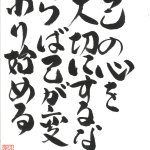 己の心を
大切にするな
らば己が変
わり始める